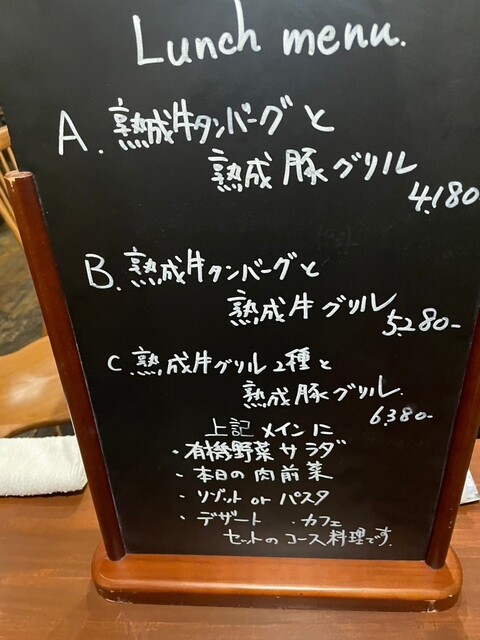 Lunch menu.
A. 熟成牛タンバーグと
熟成豚グリル
4,180
B. 熟成牛タンバーグと
熟成牛グリル
5,280-
C 熟成牛グリル2種と
熟成豚グリル.
6,380-
上記メインに
・有機野菜サラダ
・本日の肉前菜
・リゾット or パスタ
・デザート ・カフェ
セットのコース料理です.